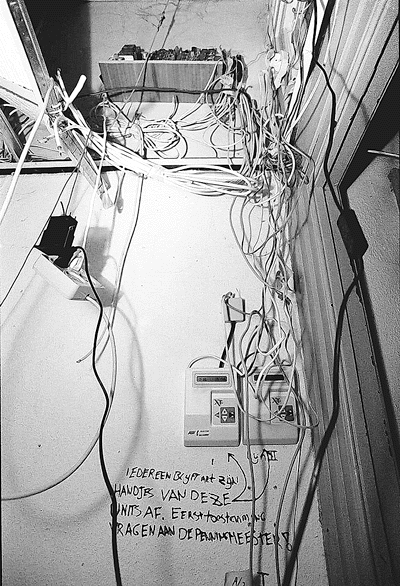 XE
XE
I
II
IEDEREEN BLYFT MET ZIJN
HANDJES VAN DEZE
UNITS AF. EERST toestemming
VRAGEN AAN DE PENNINGMEESTER!